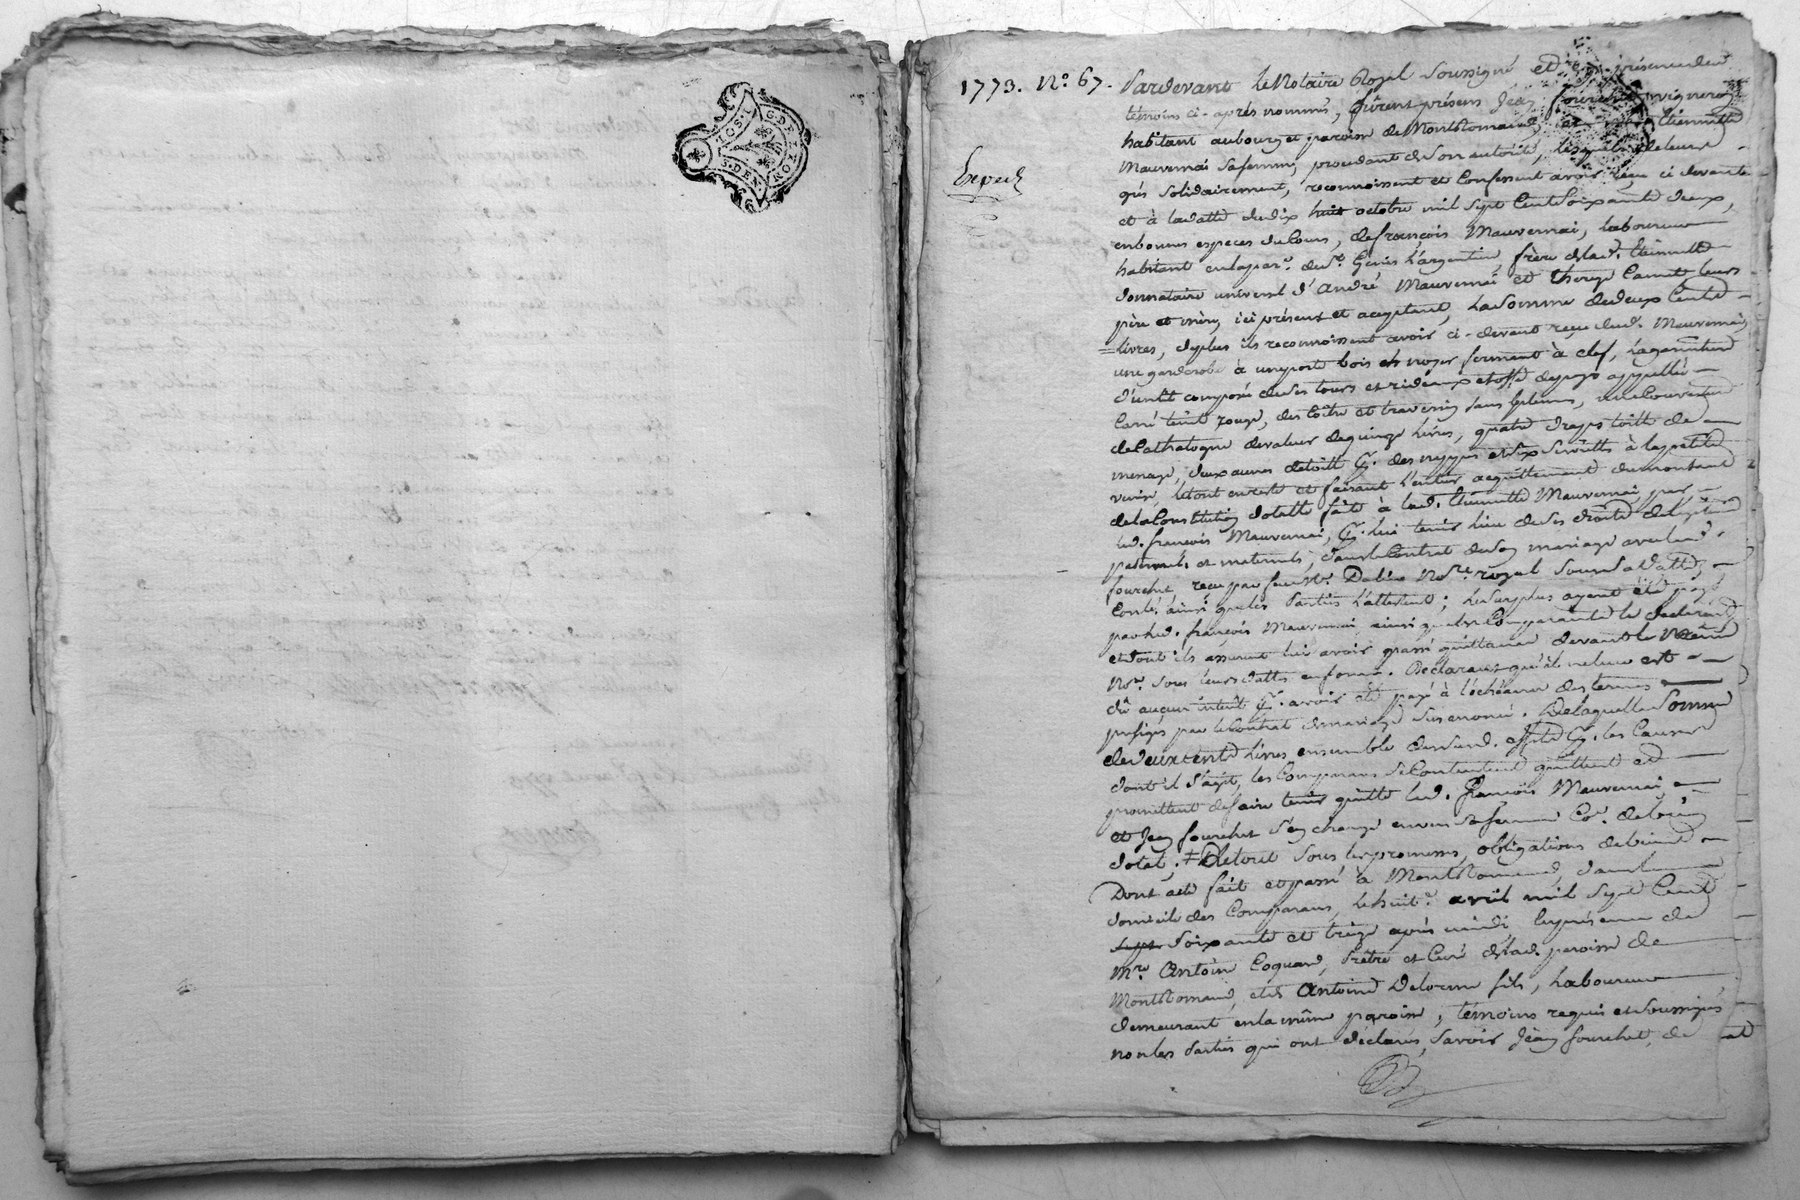 G. DE LYON
1773. N.o 67. Pardevant le Notaire Royal Soussigné et en présence des
témoins ci-après nommés, fûrent présens Jean fourchet vigneron
habitant au bourg et paroisse de MontRomand, et Etiennette
Expedé
Mauvernai sa femme, procedant de son autorité, lesquels de leurs
grés solidairement, reconnoissent et Confessent avoir reçu ci devant
et à la datte du dix huit octobre mil sept Cent Soixante deux,
en bonnes especes du Cours, de françois Mauvernai, laboureur
habitant en la par.e de S.t Genis L'argentiere, frère de lad. Etiennette
donnataire universel d'André Mauvernai et Therese Camet leurs
père et mère, ici présent et acceptant, la Somme de deux Cents
livres, deplus ils reconnoissent avoir ci-devant reçu dud. Mauvernai,
une garderobe à une porte bois de noyer fermant à clef, la garniture
d'un lit composé de ses tours et rideaux etoffe de pays appellée
Carré teint rouge, des Coître et traversin sans plumes, une Couverture
de Cathalogne de valeur de quinze livres, quatre draps toille de
menage, deux aunes de toille p.r des nappes et six Serviettes à la petite
venise, le tout en reste et faisant l'entier acquittement du montant
de la Constitution dotalle faite à lad. Etiennette Mauvernai par
led. françois Mauvernai, p.r lui tenir lieu de ses droits de légitime
paternels et maternels, dans le Contrat de son mariage avec led.
fourchet, reçu par feu M.e Dalin No.re royal sous sa datte,
Contés ainsi que les Parties l'attestent ; le surplus ayant été payé
par led. françois Mauvernai ainsi que les Comparants le déclarent
et dont ils assurent lui avoir passé quittance devant le même
No.re sous leurs dattes en forme. Déclarans qu'il ne leur est
dû aucun intérêt p.r avoir été payé à l'échéance des termes
préfigés par le Contrat de mariage susenoncé. De laquelle Somme
de deux cents livres ensemble desdits effets p.r les Causes
dont il s'agit, les Comparans se Contentent quittent et
promettent de faire tenir quitte led. François Mauvernai,
et Jean fourchet s'en charge envers sa femme Co.e de bien
dotal. Le tout sous les promesses, obligations de biens
Dont acte fait et passé à MontRomand, dans le
domicile des Comparans, le huit.e avril mil Sept Cent
Sept Soixante et treize après midi, en présence de
M.re Antoine Coquard, Prêtre et Curé de lad. paroisse de
MontRomand, et de Antoine Delorme fils, laboureur
demeurant en la même paroisse, témoins requis et soussignés
non les Parties qui ont déclarés, Savoir Jean fourchet, de et